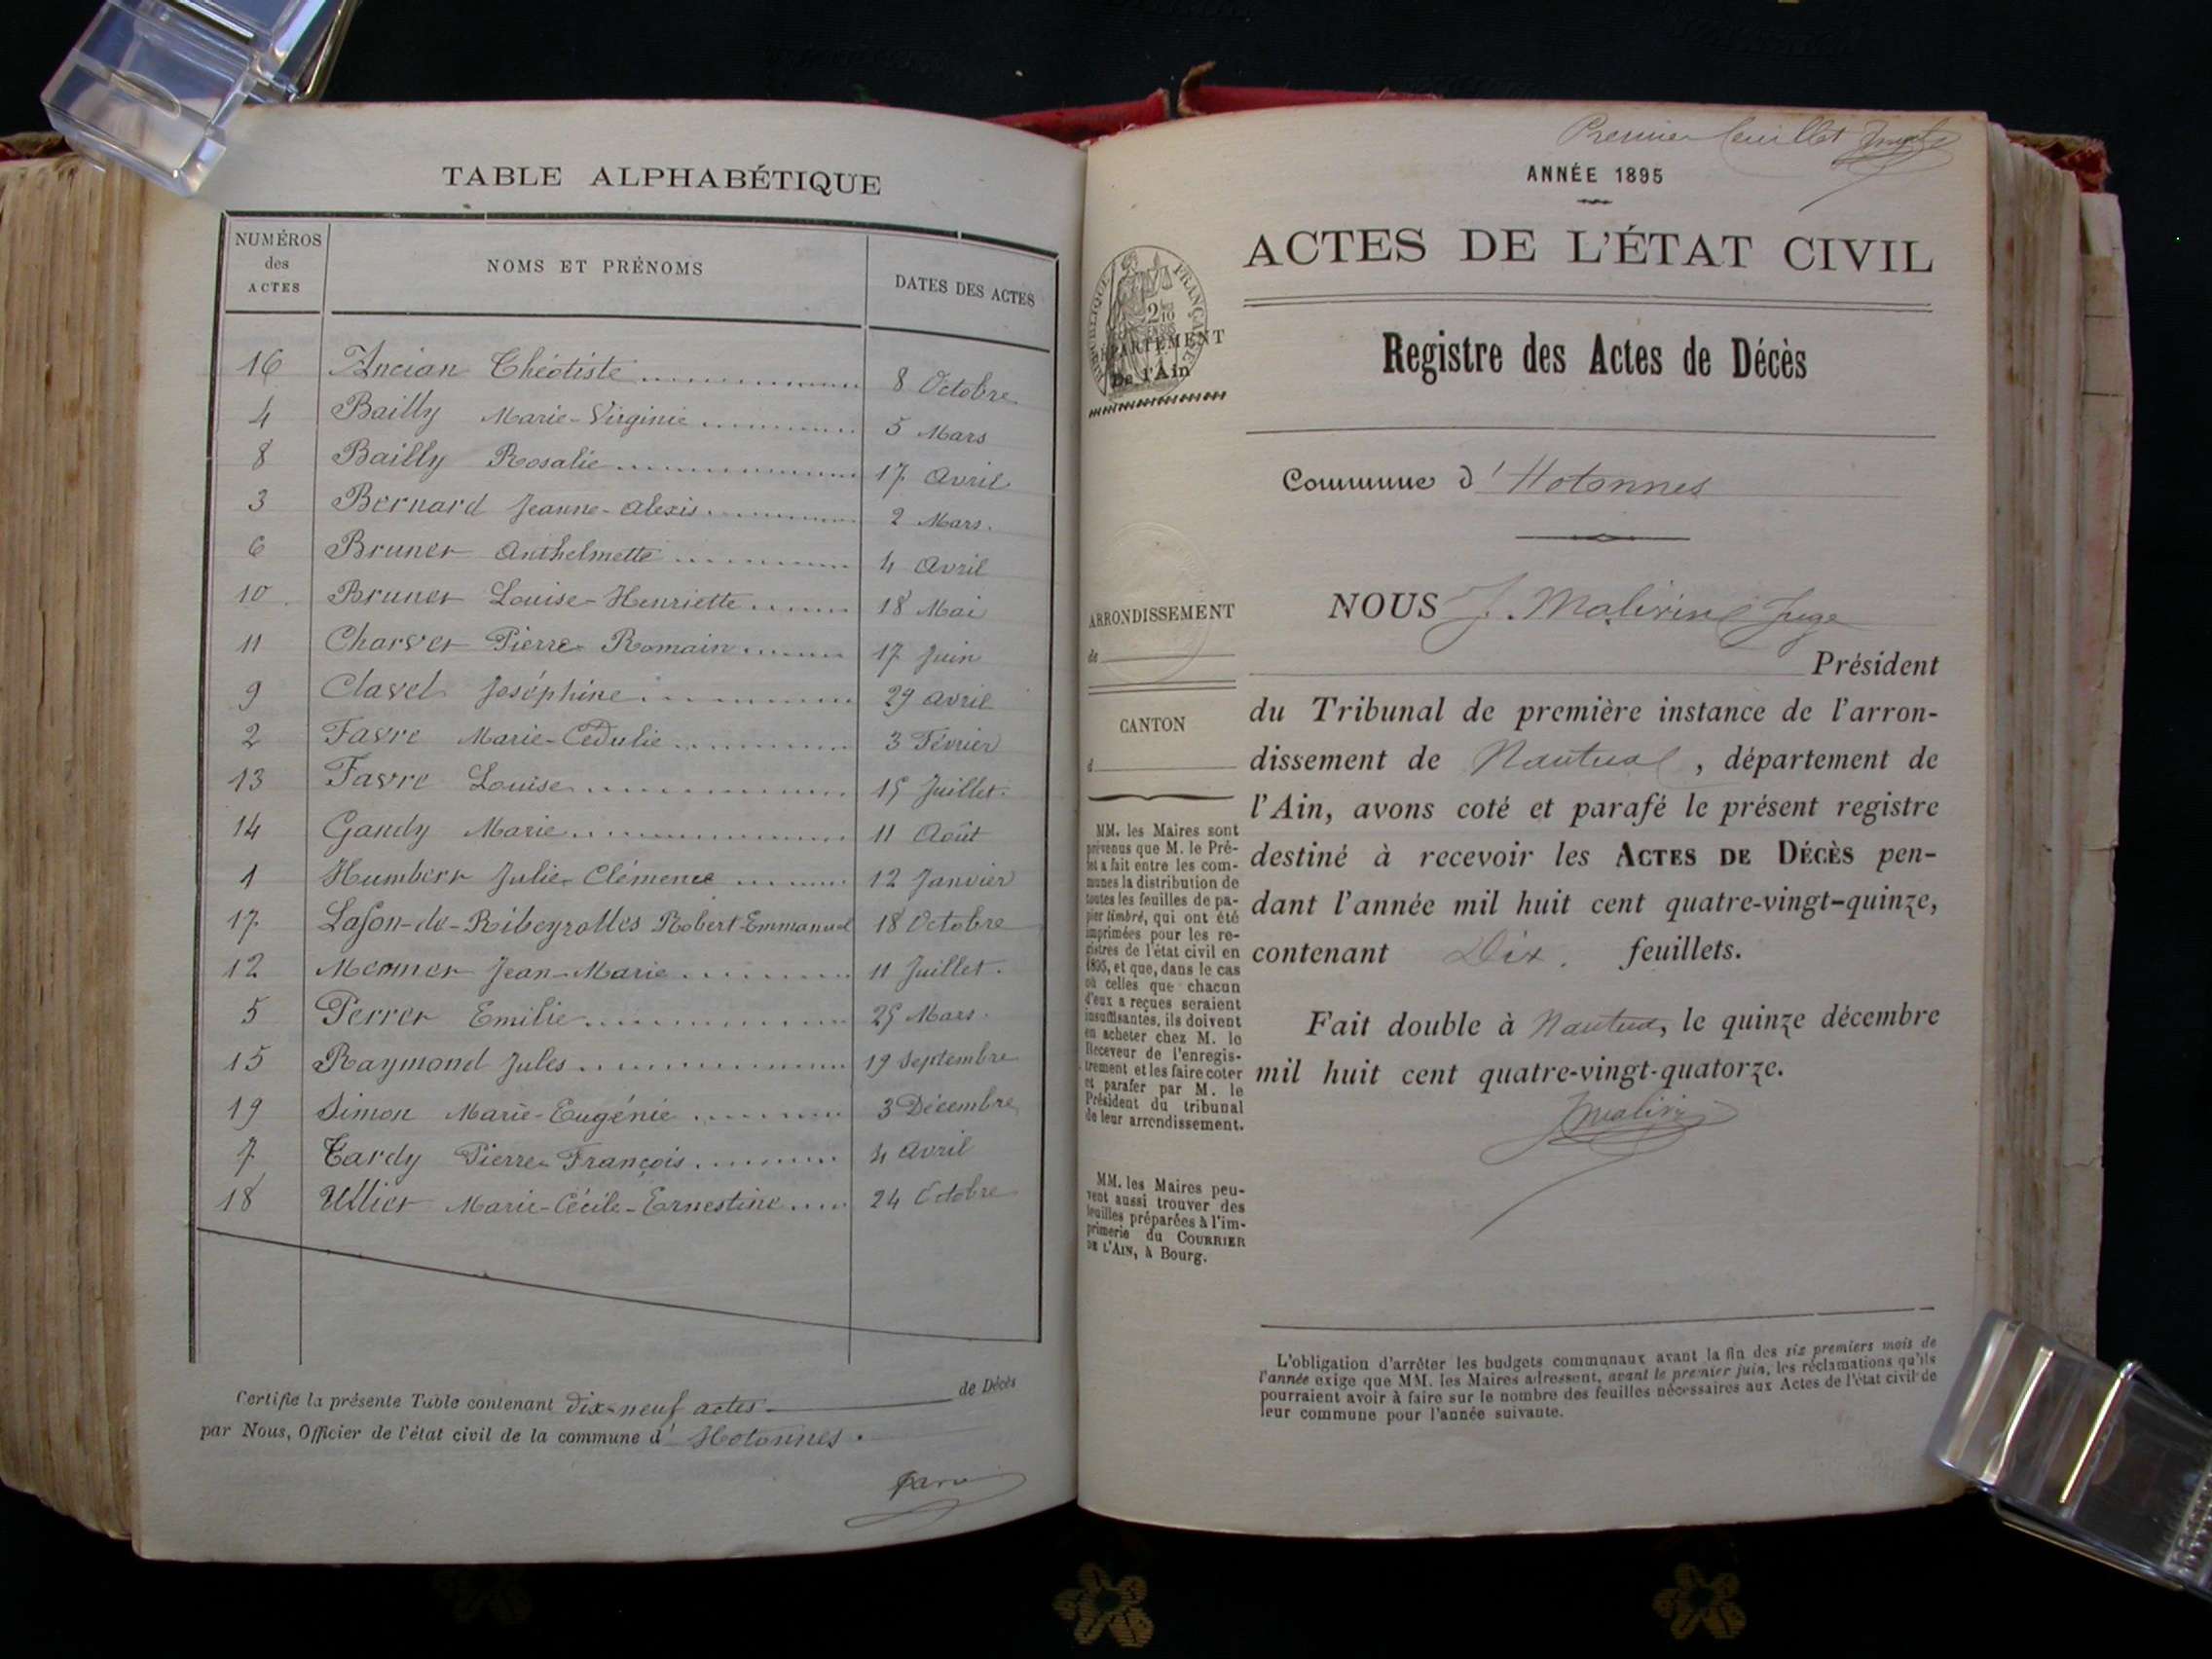 TABLE ALPHABÉTIQUE
NUMÉROS des ACTES NOMS ET PRÉNOMS DATES DES ACTES
16 Ancian Théotiste 8 Octobre
4 Bailly Marie-Virginie 5 Mars
8 Bailly Rosalie 17 Avril
3 Bernard Jeanne-Alexis 2 Mars.
6 Brunet Anthelmette 4 Avril
10 Brunet Louise-Henriette 18 Mai
11 Charvet Pierre-Romain 17 Juin
9 Clavel Joséphine 29 Avril
2 Favre Marie-Cédulie 3 Février
13 Favre Louise 15 Juillet.
14 Gandy Marie 11 Août
1 Humbert Julie-Clémence 12 Janvier
17 Lafon-de-Ribeyrolles Robert-Emmanuel 18 Octobre
12 Jean-Marie 11 Juillet.
5 Perret Emilie 25 Mars.
15 Raymond Jules 19 Septembre
19 Simon Marie-Eugénie 3 Décembre
7 Tardy Pierre-François 4 Avril
18 Ullier Marie-Cécile-Ernestine 24 Octobre
Certifié la présente Table contenant dix-neuf actes de Décès
par Nous, Officier de l'état civil de la commune d' Hotonnes.
Premier feuillet
ANNÉE 1895
ACTES DE L'ÉTAT CIVIL
RÉPUBLIQUE FRANÇAISE
2/10 EN SUS
DÉPARTEMENT
De l'Ain
Registre des Actes de Décès
Commune d'Hotonnes
ARRONDISSEMENT
de
CANTON
d
MM. les Maires sont
prévenus que M. le Pré-
fet a fait entre les com-
munes la distribution de
toutes les feuilles de pa-
pier timbré, qui ont été
imprimées pour les re-
gistres de l'état civil en
1895, et que, dans le cas
où celles que chacun
d'eux a reçues seraient
insuffisantes, ils doivent
en acheter chez M. le
Receveur de l'enregis-
trement et les faire coter
et parafer par M. le
Président du tribunal
de leur arrondissement.
MM. les Maires peu-
vent aussi trouver des
feuilles préparées à l'im-
primerie du COURRIER
DE L'AIN, à Bourg.
NOUS J. Malivin Juge
Président
du Tribunal de première instance de l'arron-
dissement de Nantua, département de
l'Ain, avons coté et parafé le présent registre
destiné à recevoir les ACTES DE DÉCÈS pen-
dant l'année mil huit cent quatre-vingt-quinze,
contenant Dix. feuillets.
Fait double à Nantua, le quinze décembre
mil huit cent quatre-vingt-quatorze.
L'obligation d'arrêter les budgets communaux avant la fin des six premiers mois de
l'année exige que MM. les Maires adressent, avant le premier juin, les réclamations qu'ils
pourraient avoir à faire sur le nombre des feuilles nécessaires aux Actes de l'état civil de
leur commune pour l'année suivante.